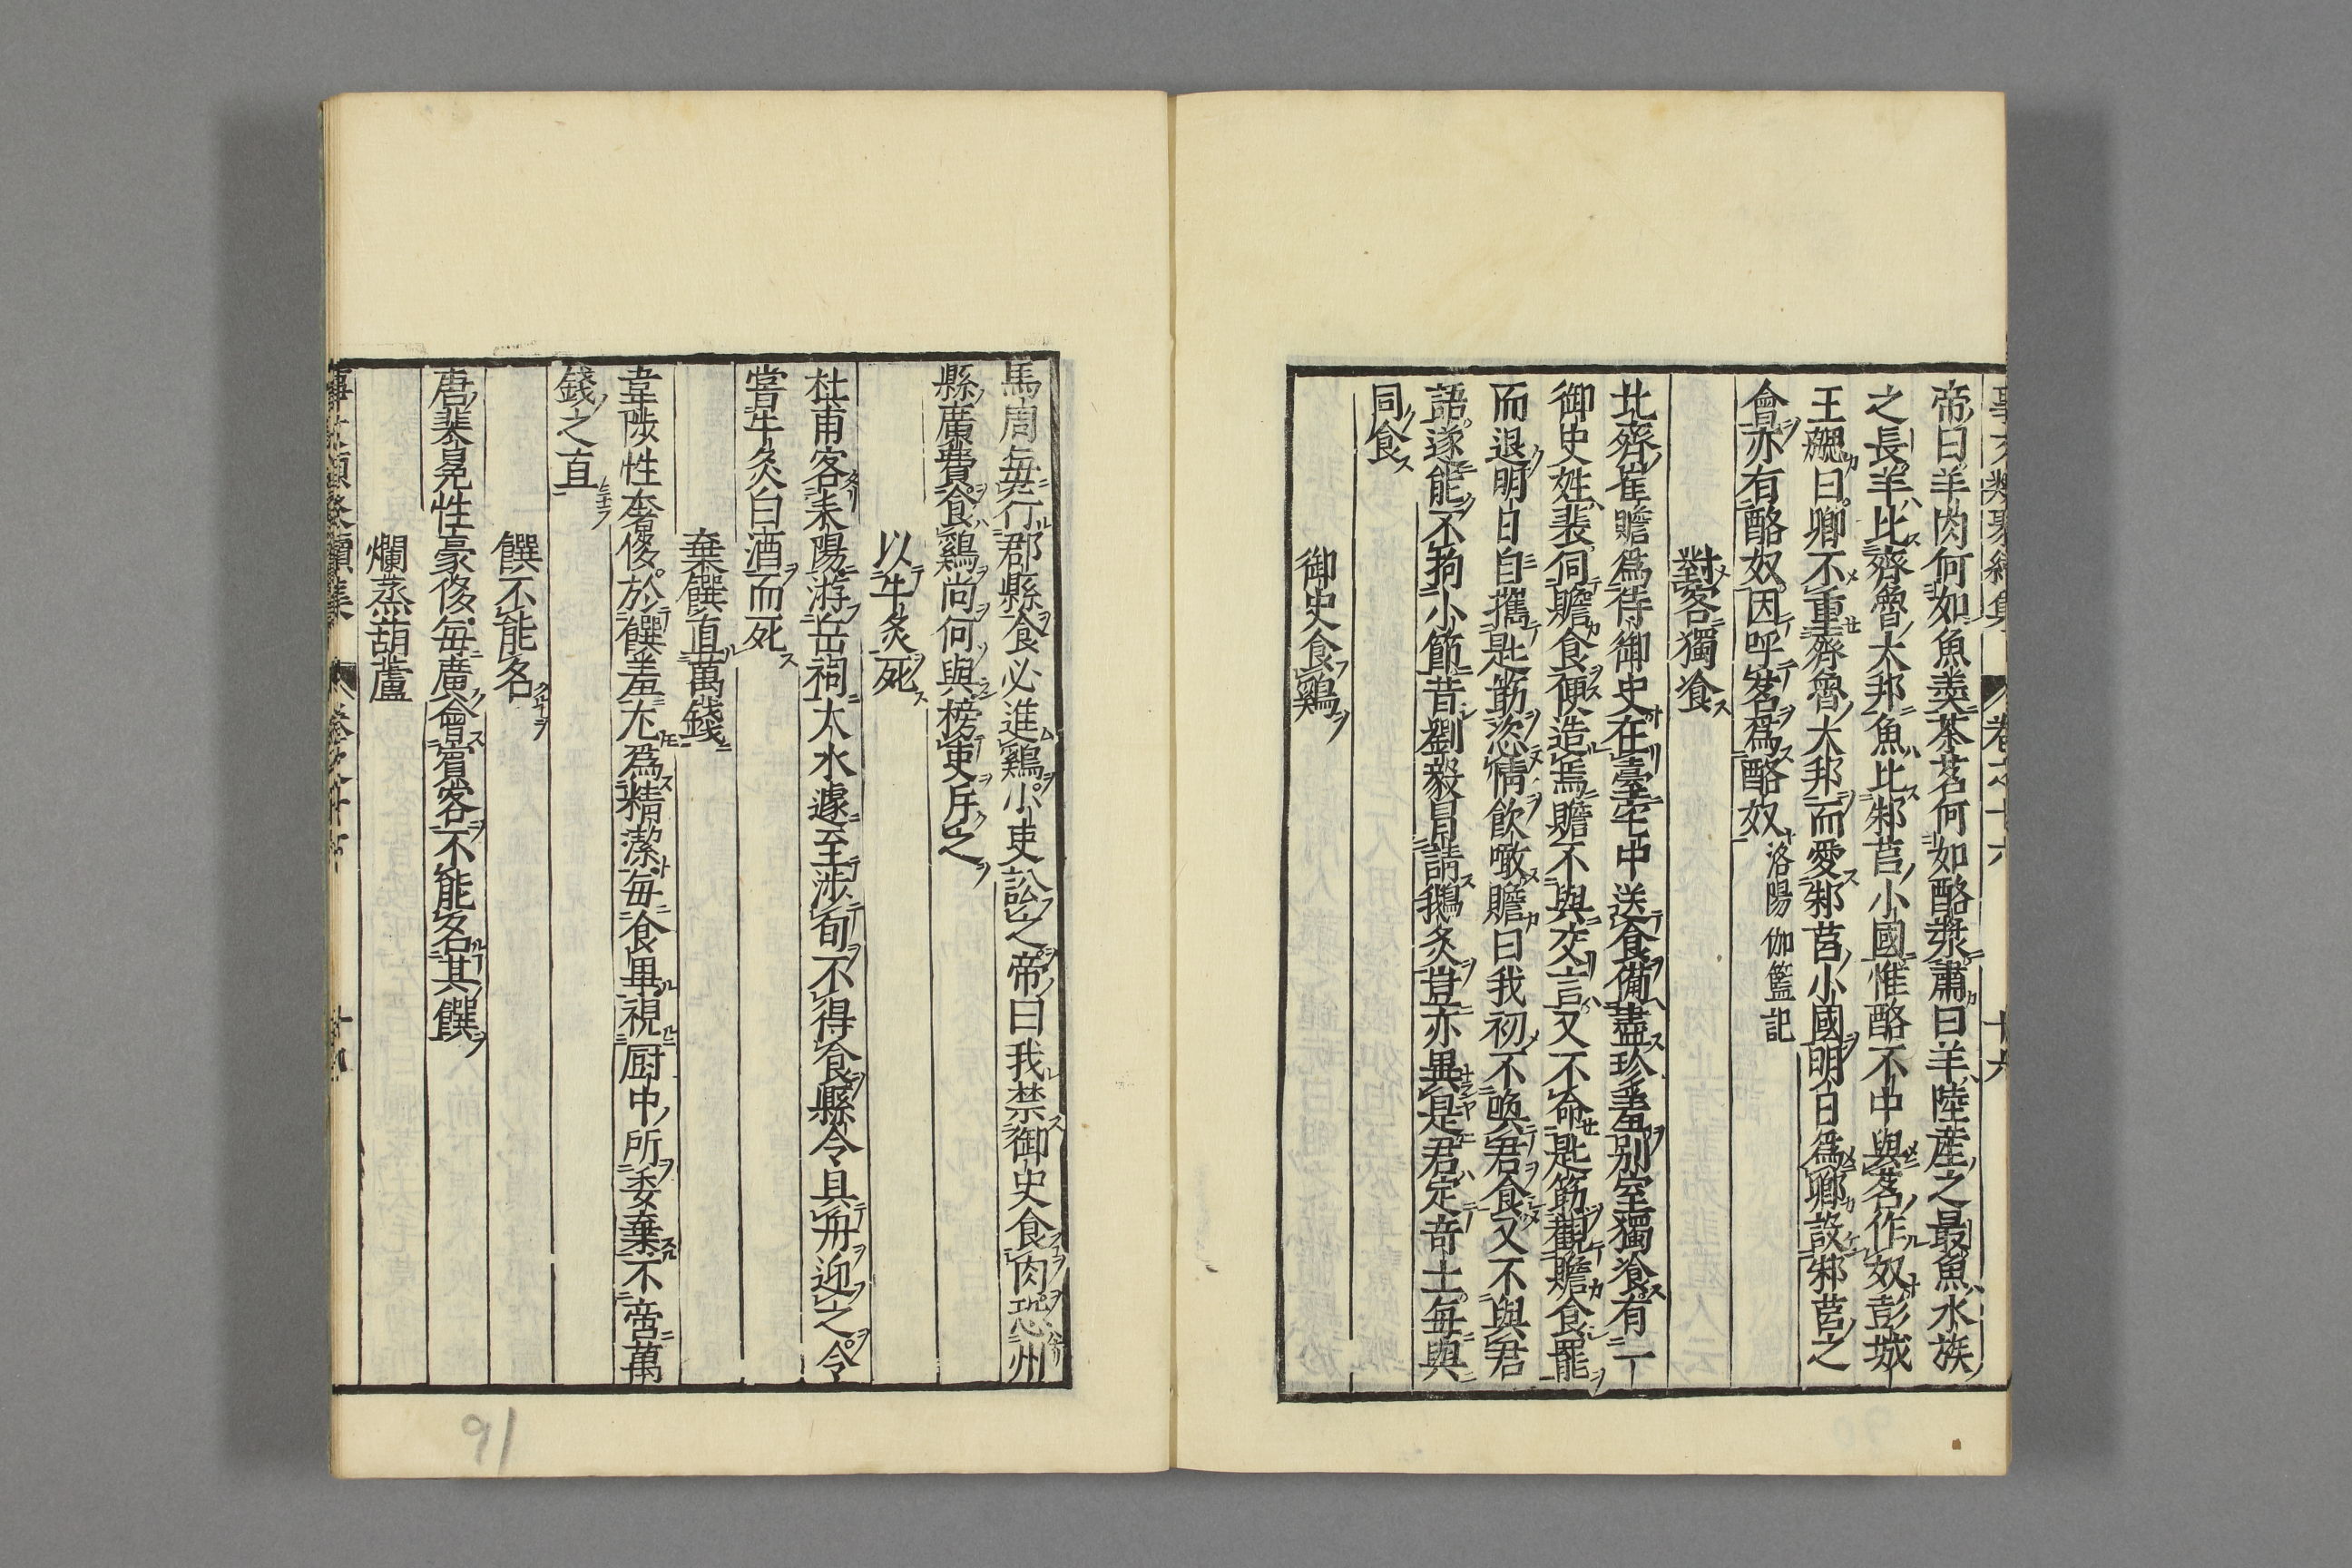 帝曰羊肉何如魚羹茶茗何如酪漿肅曰羊陸産之最魚水族
之長羊比齊魯大邦魚比邾莒小國惟酪不中與茗作奴彭城
王勰曰卿不重齊魯大邦而愛邾莒小國明日爲卿設邾莒之
會亦有酪奴因呼茗爲酪奴洛陽伽籃記
對客獨飡
北齊崔贍爲侍御史在臺宅中送食備盡珍羞別室獨飡有一
御史姓裴伺贍食便造焉贍不與交言又不命匙筯觀贍食罷
而退明日自攜匙筯恣情飮噉贍曰我初不喚君食又不與君
語遂能不拘小節昔劉毅冐請鵝炙豈亦異是君定奇士每與
同食
御史食鷄
馬周每行郡縣食必進鷄小吏訟之帝曰我禁御史食肉恐州
縣廣費食鷄尚何與榜吏斥之
以牛炙死
杜甫客耒陽游岳祠大水遽至涉旬不得食縣令具舟迎之令
嘗牛炙白酒而死
棄饌直萬錢
韋陟性奢侈於饌羞尤爲精潔每食畢視厨中所委棄不啻萬
錢之直
饌不能名
唐裴冕性豪侈每廣會賓客不能名其饌
爛蒸葫蘆